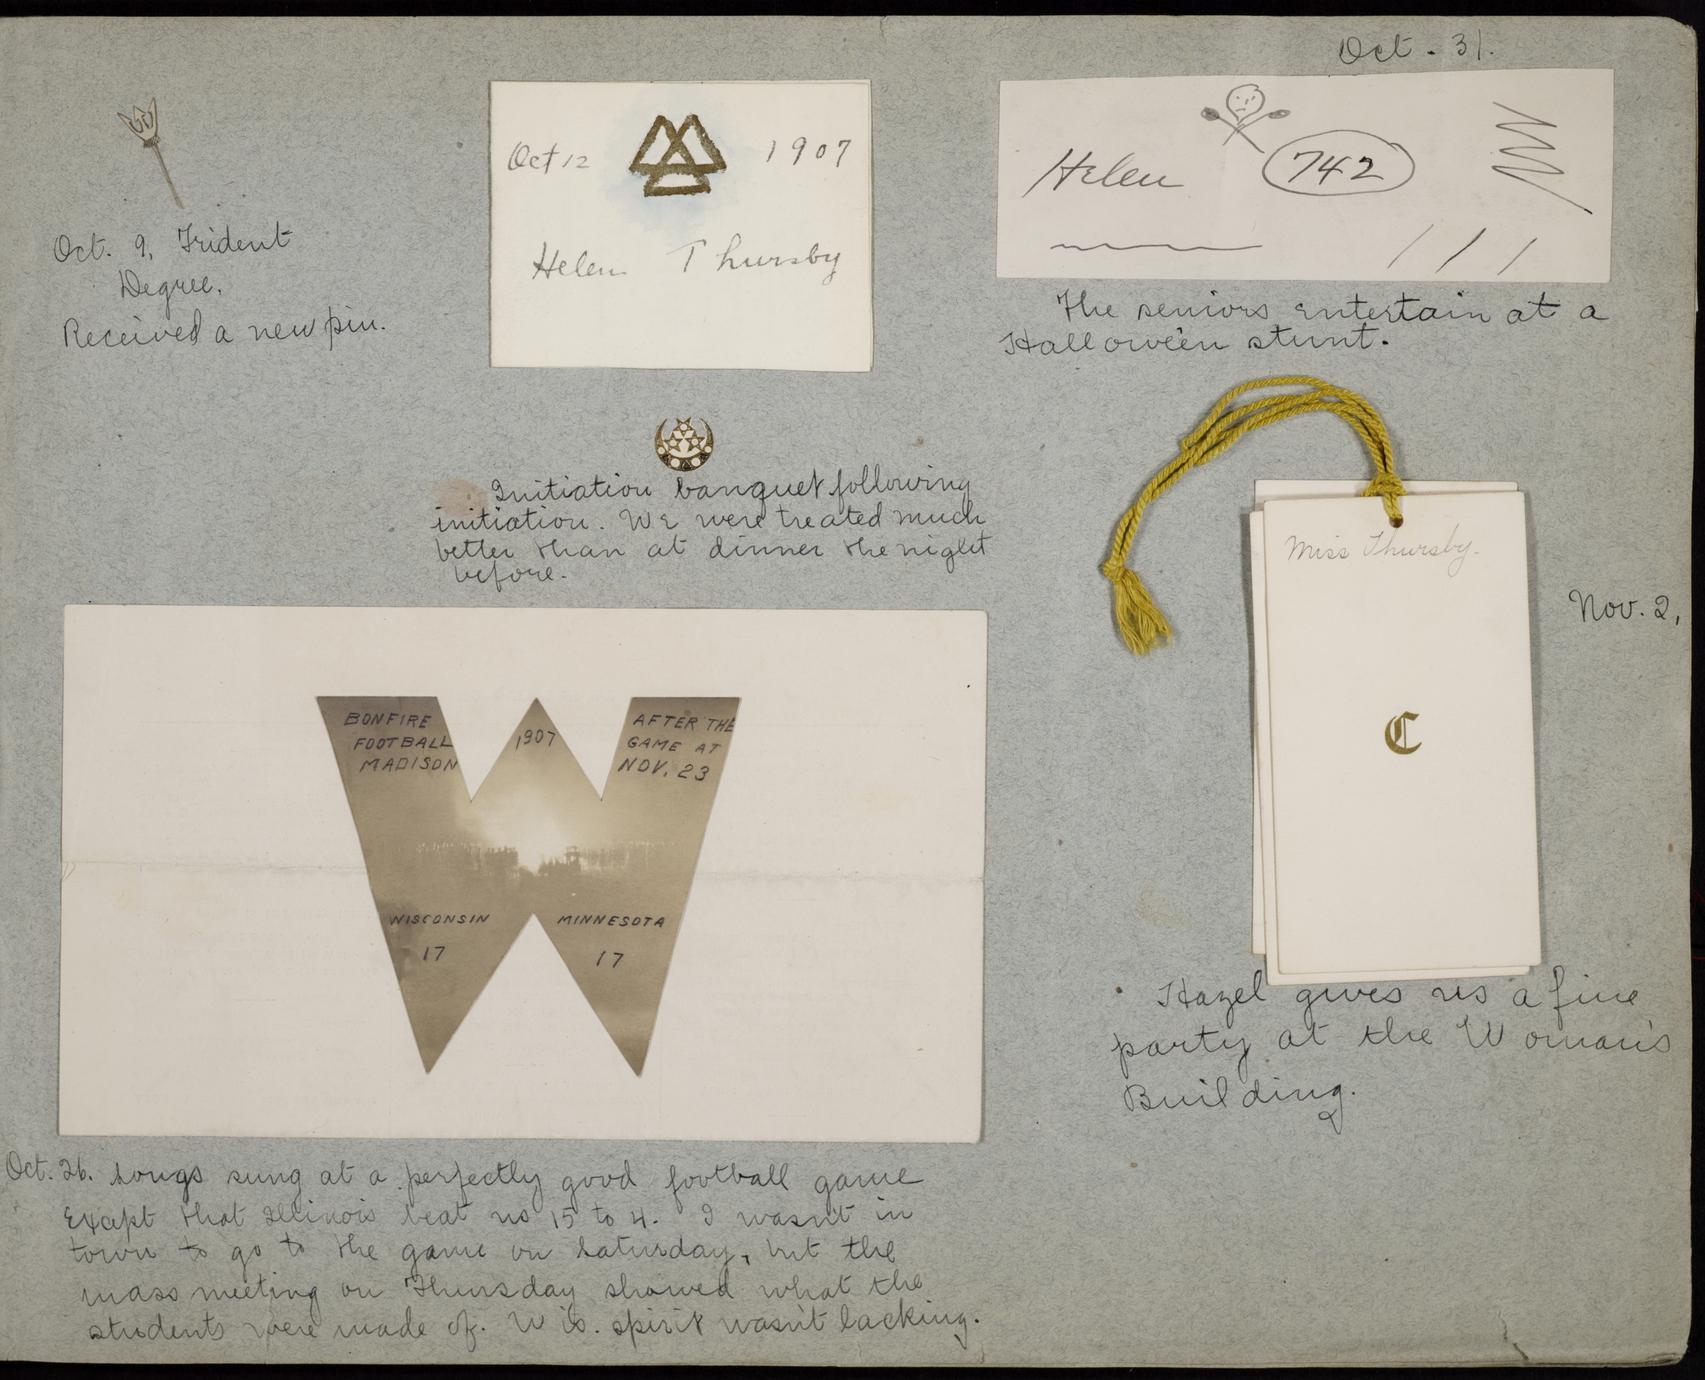 Oct. 9, Trident
Degree.
Received a new pin.
Oct 12 1907
Helen Thursby
Initiation banquet following
initiation. We were treated much
better than at dinner the night
before.
Oct. 31.
Helen 742
The seniors entertain at a
Hallowe'en stunt.
Miss Thursby.
C
Nov. 2,
Hazel gives us a fine
party at the Woman's
Building.
BONFIRE
FOOTBALL
MADISON
1907
AFTER THE
GAME AT
NOV. 23
WISCONSIN
17
MINNESOTA
17
Oct. 26. Songs sung at a perfectly good football game
Except that Illinois beat us 15 to 4. I wasn't in
town to go to the game on Saturday, but the
mass meeting on Thursday showed what the
students were made of. Wis. spirit wasn't lacking.